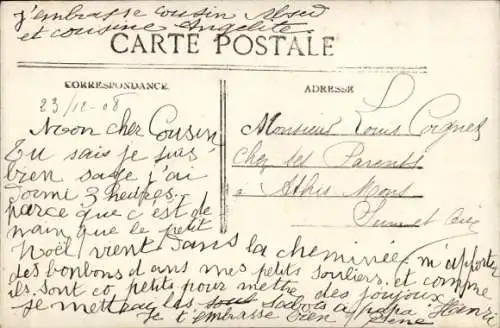 j'embrasse cousin
et cousine Angelite
CARTE POSTALE
CORRESPONDANCE
ADRESSE
23/12-08
Mon cher Cousin
Tu sais je suis
bien sage j'ai
dormi 3 heures
parce que c'est de
main que le petit
Noël vient dans la cheminée m'apporter
des bonbons dans mes petits souliers et comme
ils sont petits pour mettre des joujoux
je mettrai les sabots a papa
Je t'embrasse bien
Monsieur Louis
Chez ses Parents
à Athis Mons
Seine et Oise